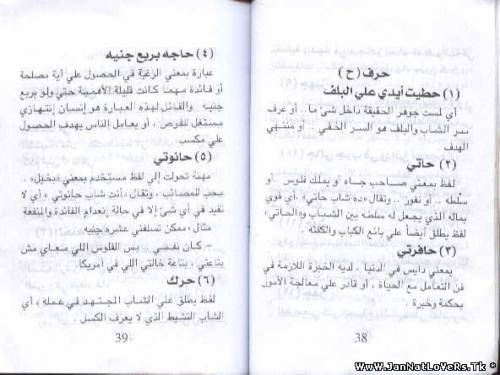 حرف ( ح )
(١) حطيت أيدي علي البلف
أي لمست جوهر الحقيقة داخل شئ ما .. أو عرف
سر الشاب والبلف هو السر الخفي .. أو منتهي
الهدف
(٢) حاتي
لفظ بمعني صاحب جاه أو يملك فلوس .. أو
سلطه .. أو نفوز .. وتقال «ده شاب حاتي» أي قوي
بماله الذي يجعل له سلطه بين الشباب و«الحاتي»
لفظ يطلق أيضاً علي بائع الكباب والكفته
(٣) حافرتي
بمعني دايس في الدنيا . لديه الخبرة اللازمة في
فن التعامل مع الحياة ، أو قادر علي معالجة الأمور
بحكمة وخبرة .
38
(٤) حاجه بربع جنيه
عبارة بمعني الرغبة في الحصول علي أية مصلحة
أو فائدة مهما كانت قليلة الأهمية حتي ولو بربع
جنيه والقائل لهذه العبارة هو إنسان إنتهازي
مستغل للفرص ، أو يعامل الناس بهدف الحصول
علي مكسب
(٥) حانوتي
مهنة تحولت إلي لفظ مستخدم بمعني «بخيل» ..
محب للمصائب .. وتقال «أنت شاب حانوتي » أي لا
تفيد في أي شئ إلا في حالة إنعدام الفائدة والمنفعة
مثال ، ممكن تسلفني عشره جنيه
– كان نفسي .. بس الفلوس اللي معاي مش
بتاعتي ، بتاعة خالتي اللي في أمريكا.
(٦) حرك
لفظ يطلق علي الشاب المجتهد في عمله ، أي
الشاب النشيط الذي لا يعرف الكسل .
39
WwW.JanNatLoVeRs.Tk *